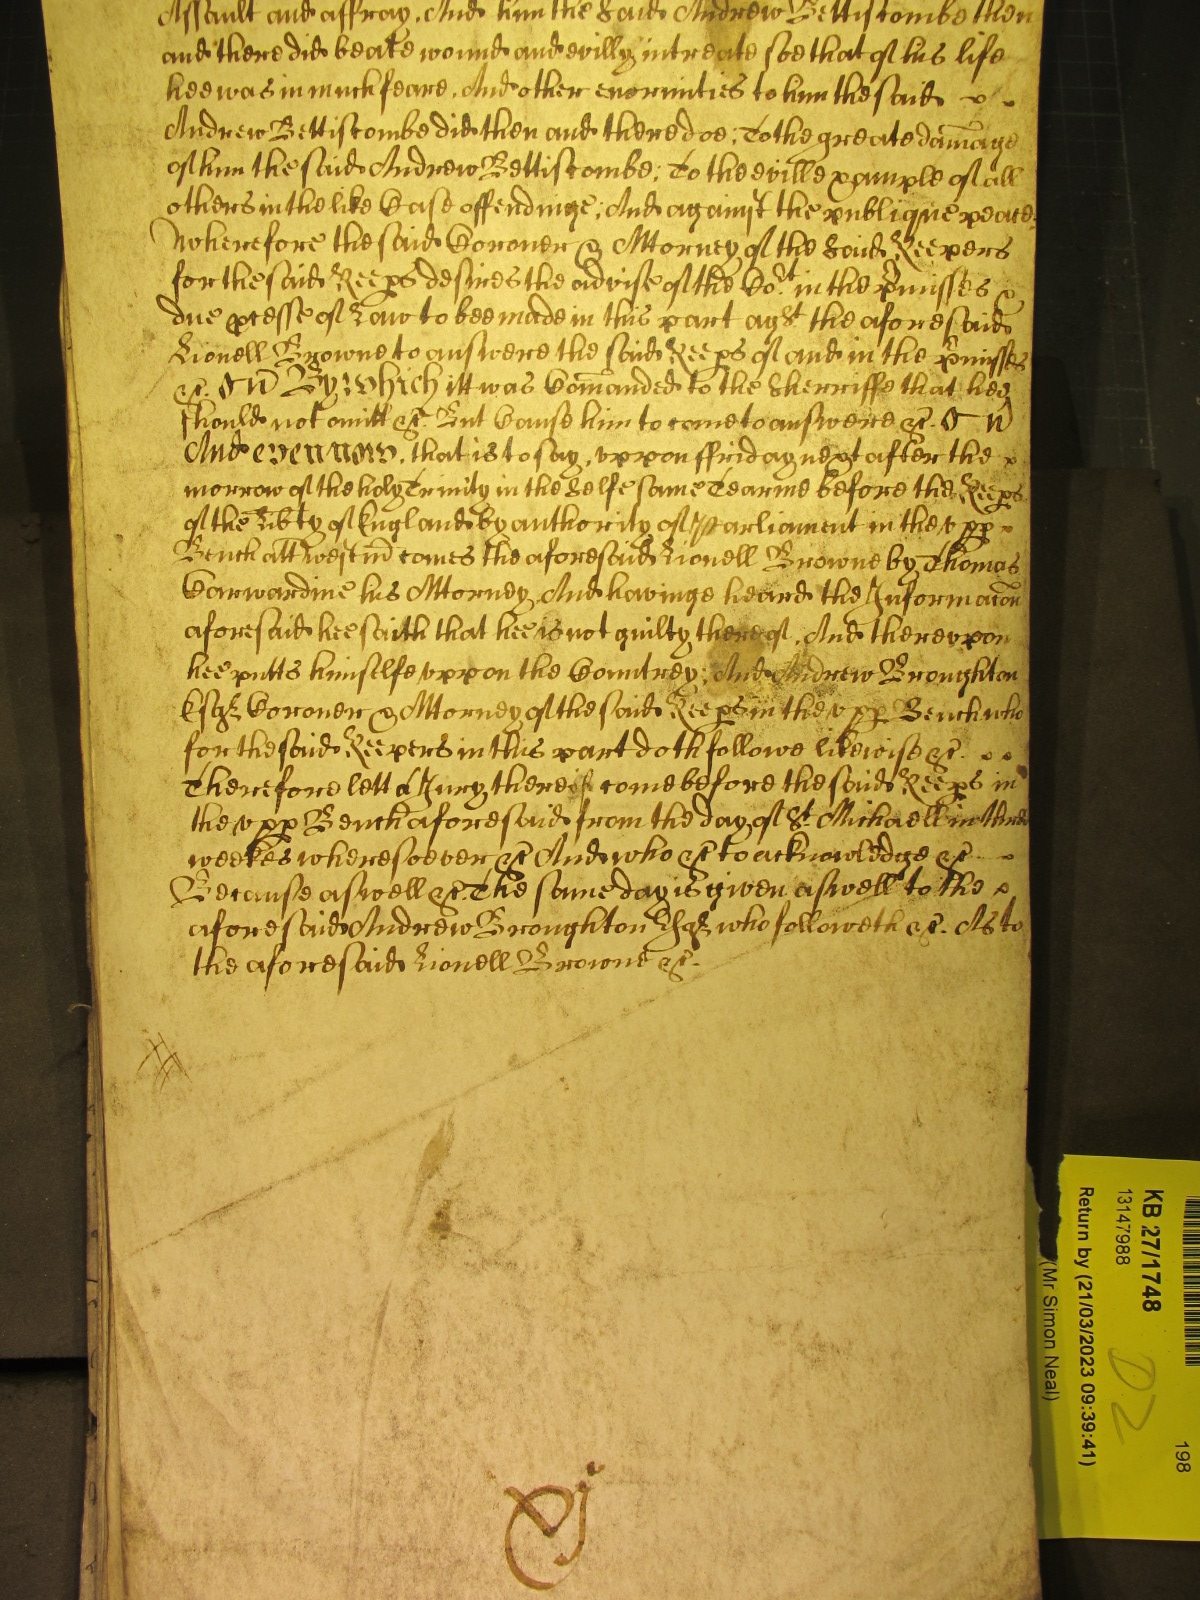 Assault and affray. And him the said Andrew Bettiscombe then
and there did beate wound and evilly intreate soe that of his life
hee was in much feare. And other enormities to him the said
Andrew Bettiscombe did then and there doe; To the greate damage
of him the said Andrew Bettiscombe; To the eville example of all
others in the like Case offendinge; And against the publique peace.
Wherefore the said Coroner & Attorney of the said Keepers
for the said Keeps desires the advise of the Cort in the pmisses &
due pcesse of Law to bee made in this part agst the aforesaid
Lionell Browne to answere the said Keeps of and in the pmisses
&c. By which itt was Comanded to the Sherriffe that hee
should not omitt &c. But Cause him to come to answere &c.
And even now, that is to say, uppon ffriday next after the
morrow of the holy Trinity in the selfe same Tearme before the Keeps
of the Libty of England by authority of Parliament in the upp
Bench att Westm comes the aforesaid Lionell Browne by Thomas
Carwardine his Attorney And havinge heard the Informacon
aforesaid hee saith that hee is not guilty thereof. And thereupon
hee putts himselfe uppon the Countrey; And Andrew Broughton
Esqr Coroner & Attorney of the said Keeps in the upp Bench who
for the said Keepers in this part doth followe likewise &c.
Therefore lett a Jury thereof come before the said Keeps in
the upp Bench aforesaid from the day of St. Michaell in three
weekes wheresoever &c And who &c to acknowledge &c
Because aswell &c. The same day is given aswell to the
aforesaid Andrew Broughton Esqr who followeth &c. As to
the aforesaid Lionell Browne &c.
KB 27/1748
13147988
Return by (21/03/2023 09:39:41)
(Mr Simon Neal)
D2
198